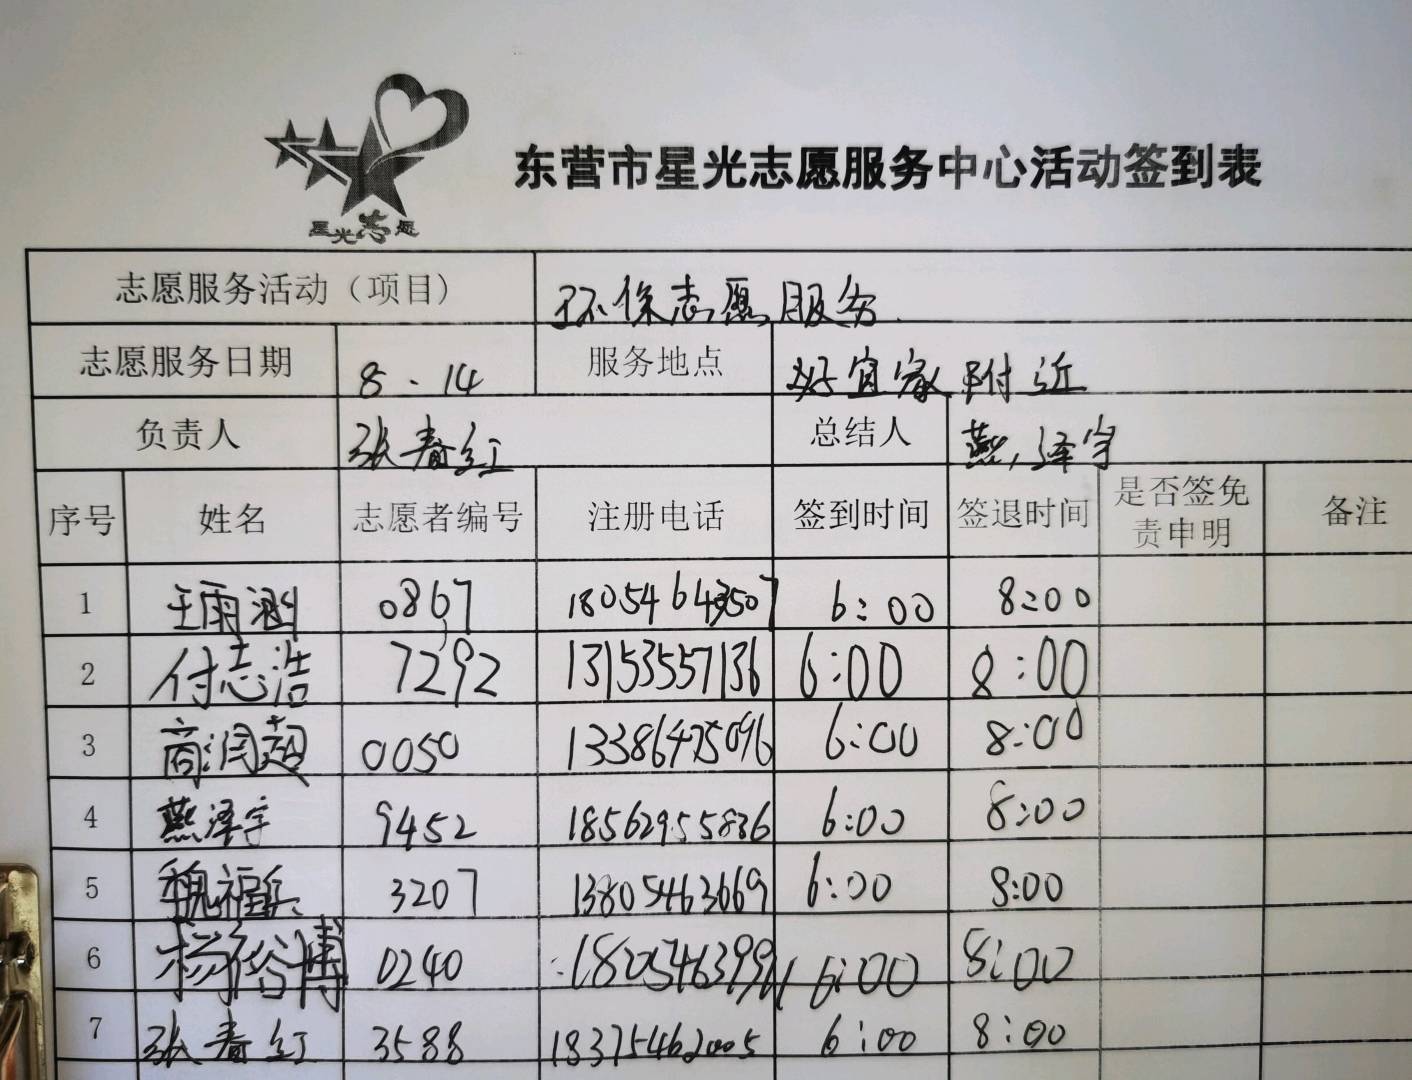 星光志愿
东营市星光志愿服务中心活动签到表
志愿服务活动（项目） 环保志愿服务
志愿服务日期 8.14 服务地点 好宜家附近
负责人 张春红 总结人 燕泽宇
序号 姓名 志愿者编号 注册电话 签到时间 签退时间 是否签免责申明 备注
1 王雨涵 0867 6:00 8:00
2 付志浩 7292 13153557136 6:00 8:00
3 商润超 0050 13386475096 6:00 8:00
4 燕泽宇 9452 18562955836 6:00 8:00
5 魏福兵 3207 13805463669 6:00 8:00
6 杨俗博 0240 6:00 8:00
7 张春红 3588 18375462005 6:00 8:00